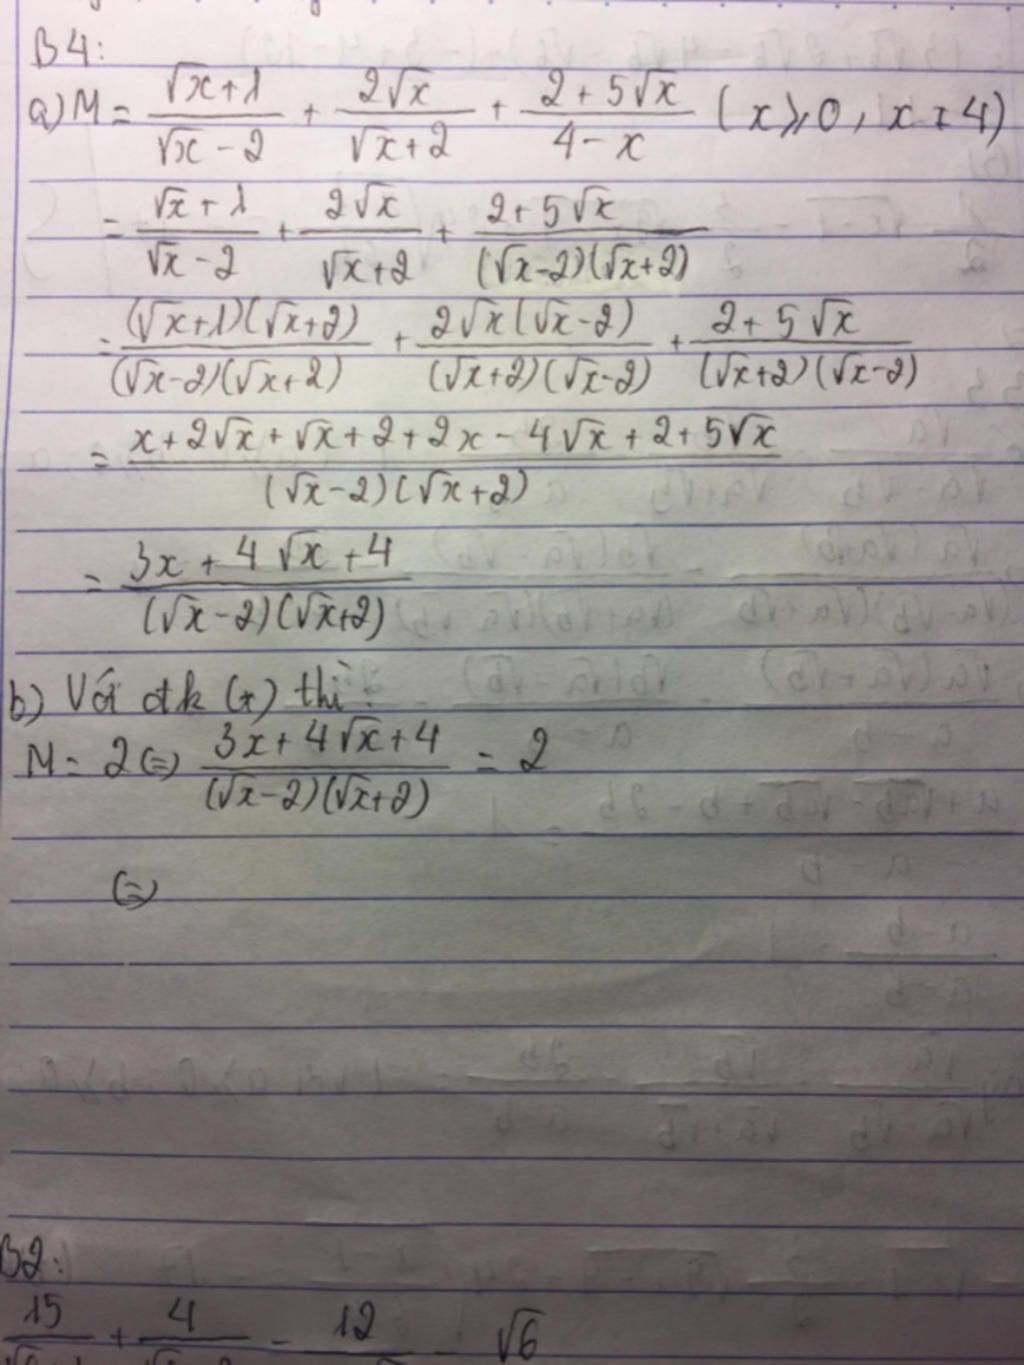 B4:
a) M = (√x + 1)/(√x - 2) + (2√x)/(√x + 2) + (2 + 5√x)/(4 - x) (x ≥ 0, x ≠ 4)
= (√x + 1)/(√x - 2) + (2√x)/(√x + 2) + (2 + 5√x)/((√x - 2)(√x + 2))
= ((√x + 1)(√x + 2))/((√x - 2)(√x + 2)) + (2√x(√x - 2))/((√x + 2)(√x - 2)) + (2 + 5√x)/((√x + 2)(√x - 2))
= (x + 2√x + √x + 2 + 2x - 4√x + 2 + 5√x)/((√x - 2)(√x + 2))
= (3x + 4√x + 4)/((√x - 2)(√x + 2))
b) Với đk (*) thì:
M = 2 (=) (3x + 4√x + 4)/((√x - 2)(√x + 2)) = 2
(=)
B2:
15 + 4 - 12 - √6